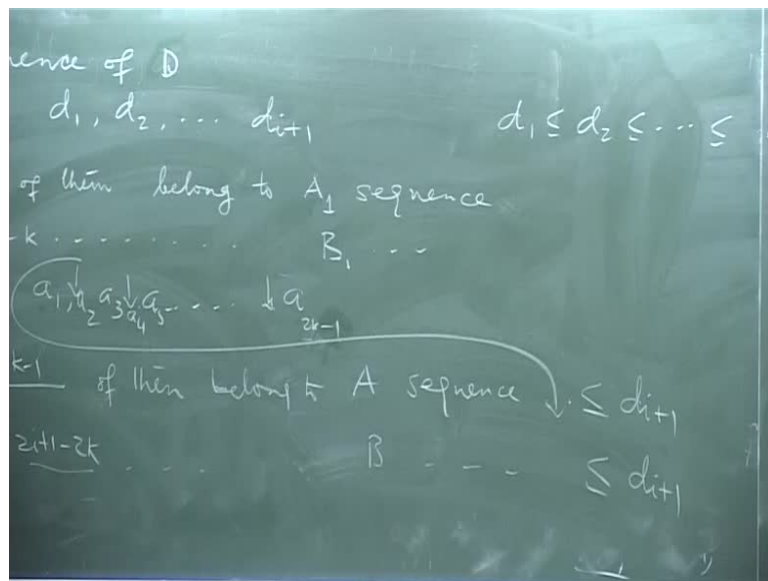 ence of D
d₁, d₂, ... dᵢ₊₁ d₁ ≤ d₂ ≤ ... ≤
of them belong to A₁ sequence
-k ......... B₁ ...
a₁, a₂ a₃ a₄ a₅ .... ↓ a₂ₖ₋₁
k-1 of them belong to A sequence . ≤ dᵢ₊₁
2i+1-2k ... B .... ≤ dᵢ₊₁